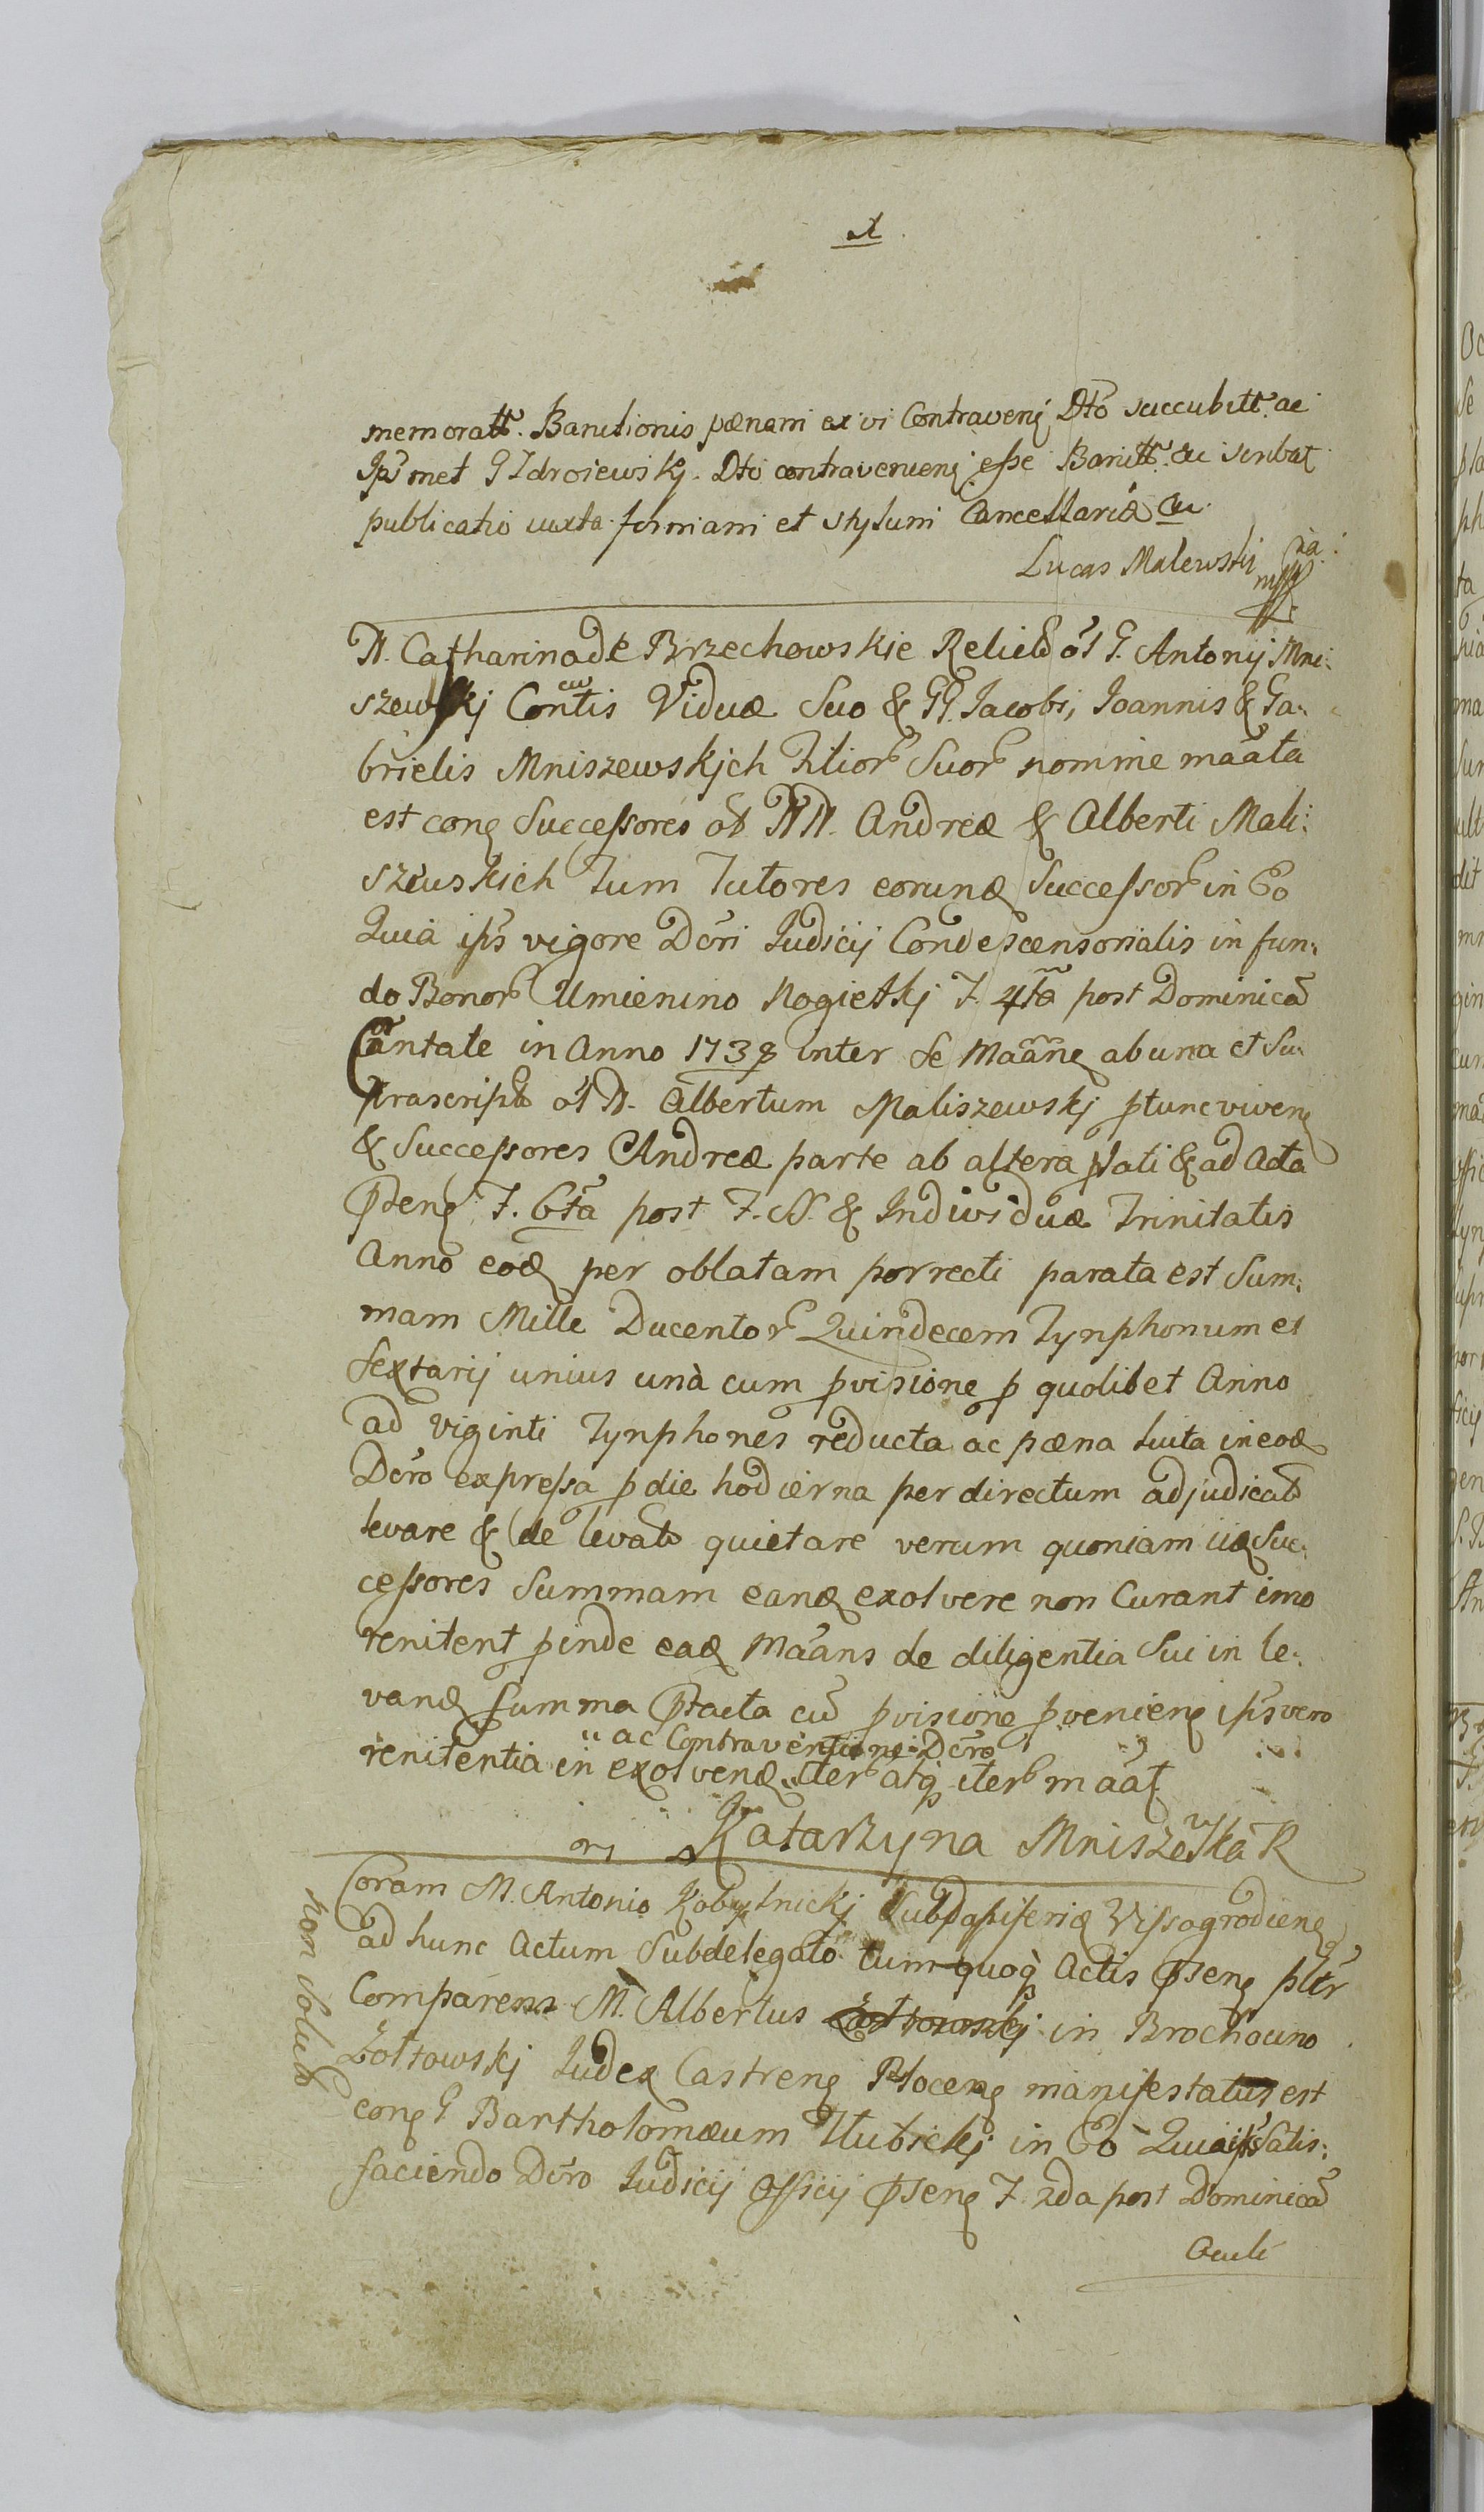 memoratt. Banitionis pœnam ex vi Contraveni Dto succubitt. ac
Ips met G Zdroiewskj. Dto contravenieni esse Banitt. &c scribat
publicatio iuxta formam et stylum Cancellariæ &c
Lucas Malewski mpp
N. Catharina de Brzechowskie Relicta ol G. Antonij Mni:
szewskj Contis Viduæ Suo & GG. Jacobi, Joannis & Ga:
brielis Mniszewskjch Filior Suor nomine maãta
est con Successores ol NN. Andreæ & Alberti Mali:
szewskich Tum Tutores eorund Successor in Eo
Quia ips vigore Dcri Judicij Condescensorialis in fun:
do Bonor Umienino Rogietkj F. 4ta post Dominicã
Cantate in Anno 1738 inter se Maãn ab una et Su:
prascript ol N. Albertum Maliszewskj ptunc viven
& Successores Andreæ parte ab altera plati & ad Acta
Psen F. 6ta post F. S. & Individuæ Trinitatis
Anno eod per oblatam porrecti parata est Sum:
mam Mille Ducentor Quindecem Tynphonum et
Sextarij unius unà cum pvisione p quolibet Anno
ad viginti Tynphones reducta ac pœna luita in eod
Dcro expressa p die hodierna per directum adjudicat
levare & de levat quietare verum quoniam iid Suc:
cessores Summam eand exolvere non Curant imo
renitent pinde ead Maãns de diligentia Sui in le:
vand Summa Ptacta cũ pvisione pvenien ips vero
" ac Contraventione Dcro
renitentia in exolvend " iter atq iter maãt
Katarzyna Mniszewska R
Coram M. Antonio Kobylnickj Subdapifero Vissogrodien
ad hunc Actum Subdelegato tum quoq Actis Psen pltr
Comparens M. Albertus Zołtowskj in Brochocino
Zołtowskj Judex Castren Plocen manifestatus est
con G Bartholomæum Hubickj in Eo Quia ips Satis:
faciendo Dcro Judicij Officij Psen F. 2da post Dominicã
Oculi
non solut